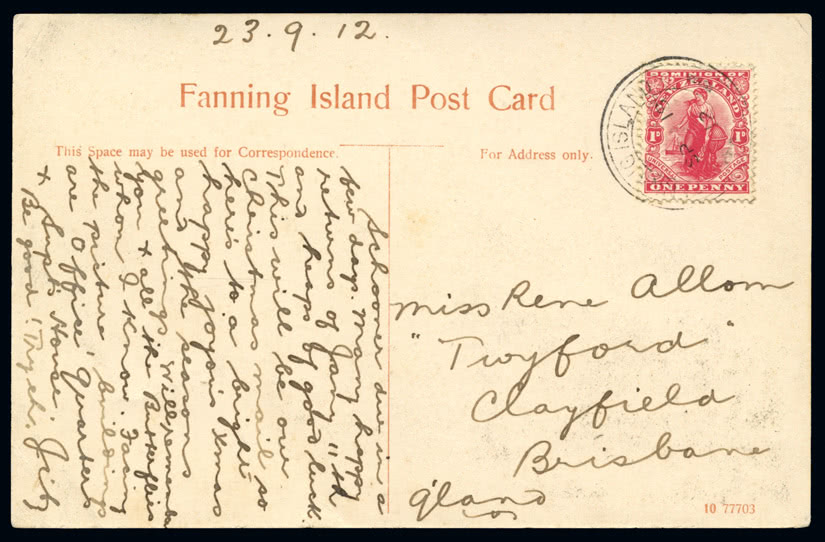 23.9.12.
Fanning Island Post Card
This Space may be used for Correspondence.
For Address only.
DOMINION OF
NEW ZEALAND
1D 1D
UNIVERSAL POSTAGE
ONE PENNY
G ISLAND
Schooner due in a
few days. Many happy
returns of Jany 11th
and heaps of good luck.
This will be our
Christmas mail so
here's to a bright
happy joyous Xmas
and the seasons
greetings. Will remember
you & all the Butterflies
whom I know. Facing
the picture buildings
are Office, Quarters
& Supt's House.
Be good!
Miss Rene Allom
"Twyford"
Clayfield
Brisbane
Q'land
10 77703